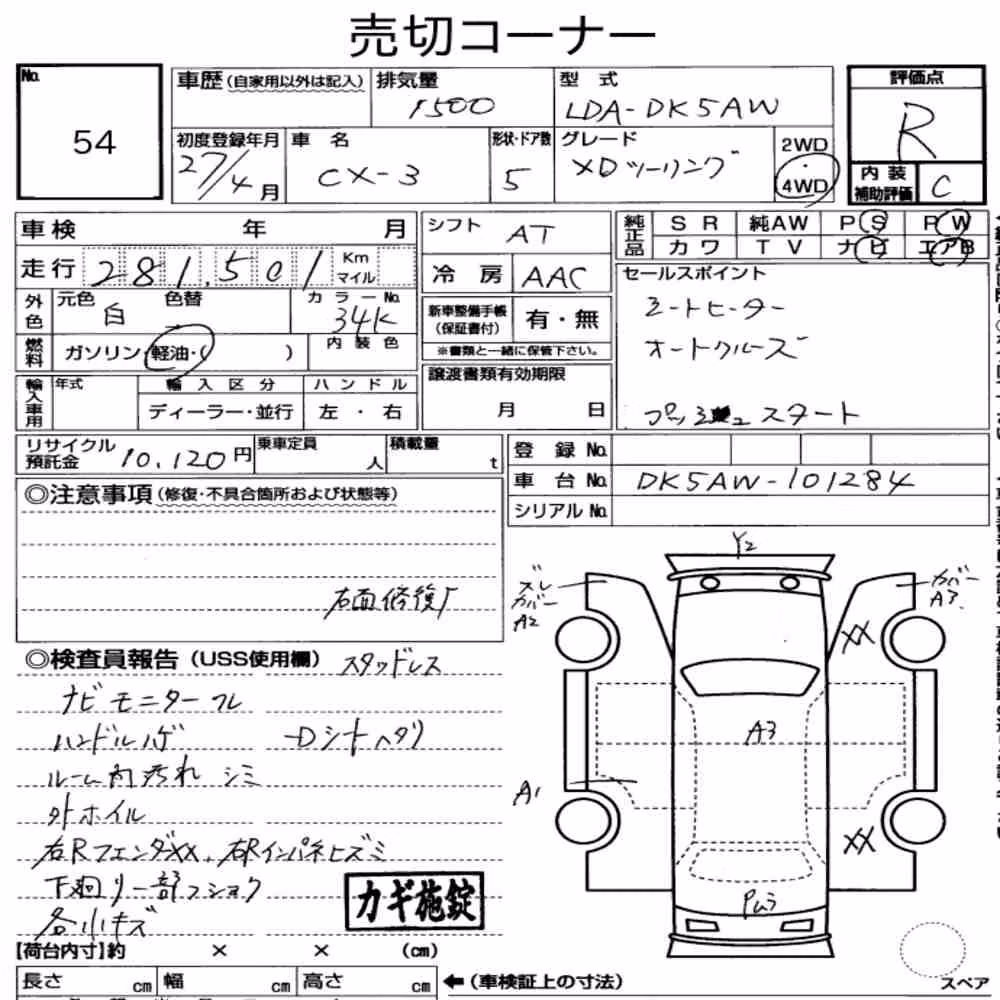 売切コーナー
No.
54
車歴 (自家用以外は記入)
排気量
1500
型 式
LDA-DK5AW
評価点
R
初度登録年月
27/4月
車 名
CX-3
形状・ドア数
5
グレード
XDツーリング
2WD
・
4WD
内 装
補助評価
C
車検 年 月
シフト
AT
純正品
SR 純AW PS PW
カワ TV ナビ エアB
走行
281,501
Km
マイル
冷 房
AAC
セールスポイント
シートヒーター
オートクルーズ
プッシュスタート
外色
元色
白
色替
カラーNo.
34K
新車整備手帳
(保証書付)
有・無
※書類と一緒に保管下さい。
燃料
ガソリン・軽油・( )
内 装 色
輸入車用
年式
輸 入 区 分
ハ ン ド ル
ディーラー・並行
左 ・ 右
譲渡書類有効期限
月 日
リサイクル
預託金
10,120円
乗車定員
人
積載量
t
登 録 No.
車 台 No.
DK5AW-101284
シリアル No.
◎注意事項 (修復・不具合箇所および状態等)
右面修復歴
◎検査員報告 (USS使用欄) スタッドレス
ナビモニターフレ
ハンドルハゲ Dシートヘタリ
ルーム内汚れ シミ
外ホイル
右RフェンダXX、右Rインパネヒズミ
下廻り一部フショク
各小キズ
カギ施錠
Y2
ズレ
カバー
A2
カバー
A3
XX
A3
A1
XX
PW3
【荷台内寸】約 × × (cm)
長さ cm
幅 cm
高さ cm
←(車検証上の寸法)
スペア